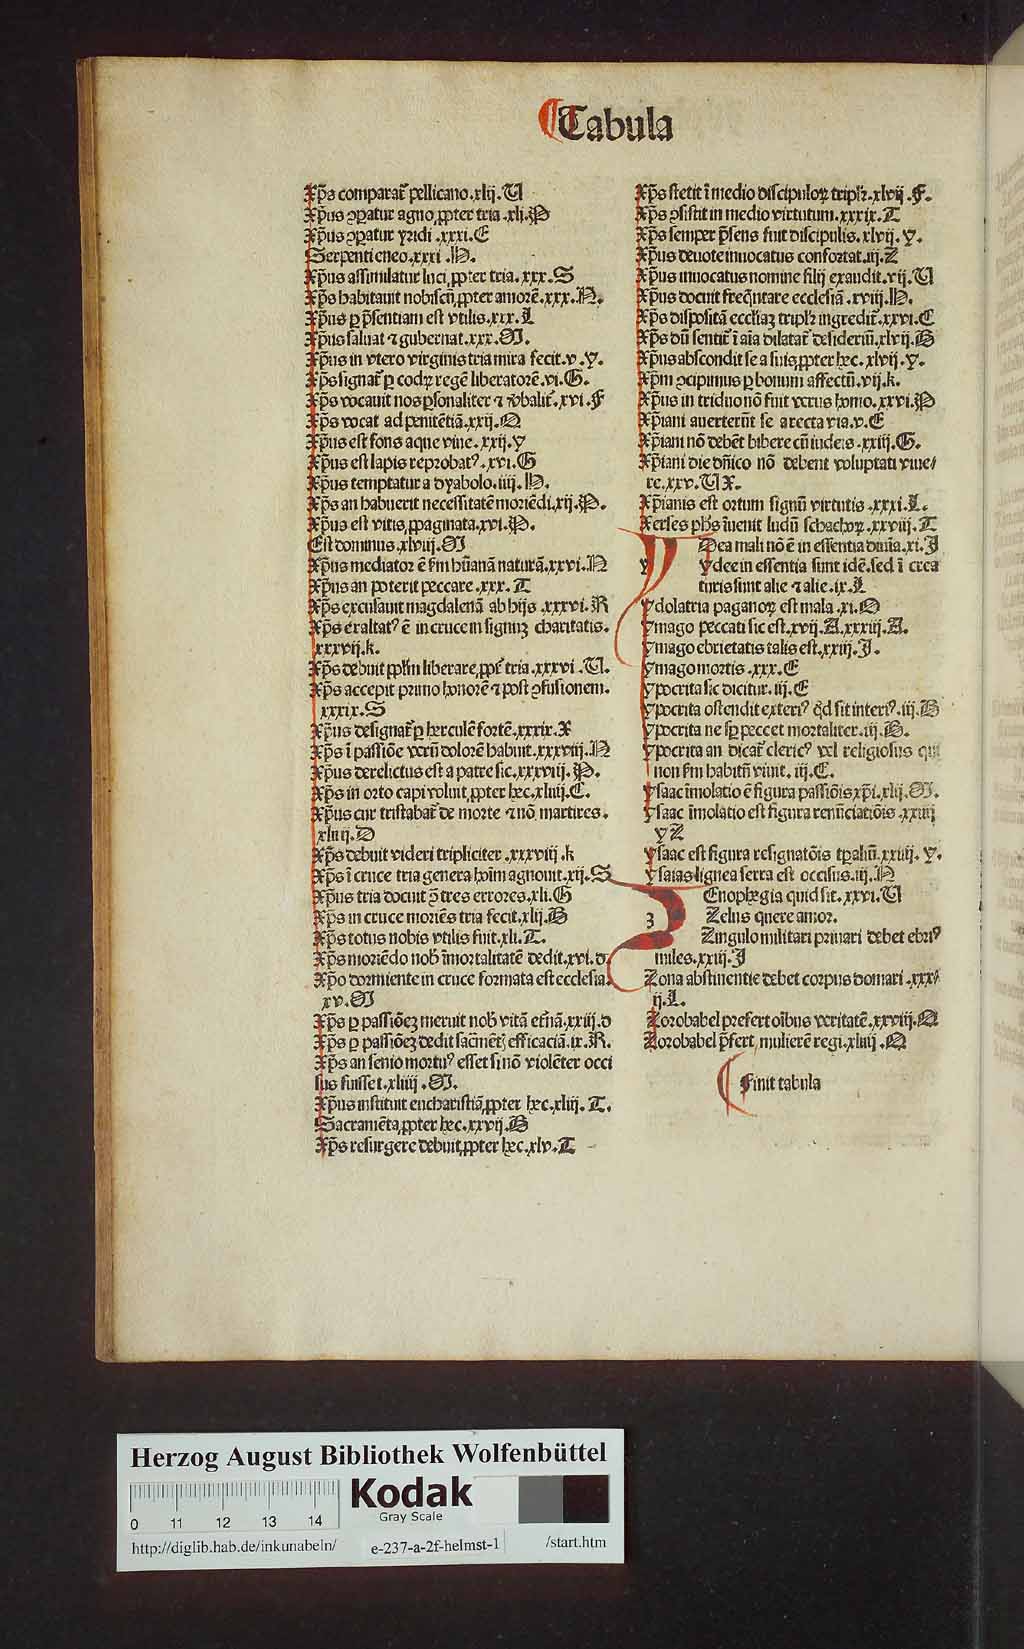 Tabula
Xp̄s comparat᷑ pellicano.xlij.U
Xp̄us ꝯꝑatur agno ꝓpter tria .xli.P
Xp̄us ꝯꝑatur yridi .xxxi.E
Serpenti eneo.xxxi .H.
Xp̄us assimulatur luci,ꝓpter tria. xxx.S
Xp̄s habitauit nobiscū,ꝓpter amorē.xxx.N.
Xp̄us ꝑ p̄sentiam est vtilis.xxx.L
Xp̄us saluat ⁊ gubernat.xxx.M.
Xp̄us in vtero virginis tria mira fecit.v.Y.
Xp̄s signat᷑ ꝑ codꝝ regē liberatorē.vi.G.
Xp̄s vocauit nos ꝑsonaliter ⁊ v̄balit᷑.xvi.F
Xp̄s vocat ad penitētiā.xxij.Q
Xp̄us est fons aque viue.xxij.y
Xp̄us est lapis reprobatꝰ.xvi.G
Xp̄us temptatur a dyabolo.iiij.H.
Xp̄s an habuerit necessitatē moriēdi.xij.P.
Xp̄us est vitis ꝓpaginata.xvi.P.
Est dominus.xlviij.M
Xp̄us mediator ē ẜm hūanā naturā.xxvi.N
Xp̄us an poterit peccare .xxx.T
Xp̄s excusauit magdalenā ab hijs .xxxvi.R
Xp̄s exaltatꝰ ē in cruce in signuꝫ charitatis.
xxxvij.k.
Xp̄s debuit pplm̄ liberare,ꝓpt᷑ tria.xxxvi .U.
Xp̄s accepit primo honorē ⁊ post ꝯfusionem.
xxxix.S
Xp̄us designat᷑ ꝑ herculē fortē.xxxix.X
Xp̄s ī passiōe verū dolorē habuit.xxxviij.N
Xp̄us derelictus est a patre sic.xxxviij.P.
Xp̄s in orto capi voluit ,ꝓpter hec.xliiij.C.
Xp̄us cur tristabat᷑ de morte ⁊ nō martires.
xliiij.D
Xp̄s debuit videri tripliciter .xxxviij .k
Xp̄s ī cruce tria genera hoīm agnouit.xij.S
Xp̄us tria docuit ꝯ̄ tres errores.xli.G
Xp̄s in cruce moriēs tria fecit.xlij.B
Xp̄s totus nobis vtilis fuit.xli.T.
Xp̄s moriēdo nob̄ īmortalitatē dedit.xvi.d.
Xp̄o dormiente in cruce formata est ecclesia.
xv.M
Xp̄s ꝑ passiōeꝫ meruit nob̄ vitā et̄nā.xxiij.d
Xp̄s ꝑ passiōeꝫ dedit sac̄mētꝭ efficaciā.ix.R.
Xp̄s an senio mortuꝰ esset si nō violēter occi
sus fuisset.xliiij .M.
Xp̄us instituit eucharistiā,ꝓpter hec.xliij. T.
Sacramēta,ꝓpter hec.xxvij.B
Xp̄s resurgere debuit,ꝓpter hec.xlv.T
Xp̄s stetit ī medio discipuloꝝ triplr̄.xlvij .F.
Xp̄s ꝯsistit in medio virtutum.xxxix.T
Xp̄s semper p̄sens fuit discipulis.xlvij.Y.
Xp̄us deuote inuocatus confortat.iij.Z
Xp̄us inuocatus nomine filij exaudit.vij.U
Xp̄us docuit freq̄ntare ecclesiā .xviij.H.
Xp̄s dispositā eccl̄iaꝫ triplr̄ ingredit᷑.xxvi.C
Xp̄s dū sentit᷑ ī aīa dilatat᷑ desideriū.xlvij.B
Xp̄us abscondit se a suis,ꝓpter hec.xlvij.Y.
Xp̄m ꝯcipimus ꝑ bonum affectū.vij.k.
Xp̄us in triduo nō fuit verus homo.xxvi.P
Xp̄iani auerterūt se a recta via.v.E
Xp̄iani nō debēt bibere cū iudeis .xxiij.G.
Xp̄iani die dn̄ico nō debent voluptati viue/
re.xxv.U X.
Xp̄ianis est ortum signū virtutis .xxxi.L.
Xerses ph̄s īuenit ludū schachoꝝ.xxviij.T
Y
y
Dea mali nō ē in essentia diuīa.xi.J
Ydee in essentia sunt idē.sed ī crea
turis sunt alie ⁊ alie .ix.L
Ydolatria paganoꝝ est mala .xi.Q
Ymago peccati sic est.xvij.A.xxxiij.A.
Ymago ebrietatis talis est.xxiij.J.
Ymago mortis .xxx.E
Ypocrita sic dicitur.iij.E
Ypocrita ostendit exteriꝰ q̄d sit interiꝰ.iij.B
Ypocrita ne sꝑ peccet mortaliter.iij.B.
Ypocrita an dicat᷑ clericꝰ vel religiosus qui
non ẜm habitū viuit. iij.C.
Ysaac īmolatio ē figura passiōis xp̄i.xlij.M.
Ysaac īmolatio est figura renūciatiōis .xxiiij
y Z
Ysaac est figura resignatōis tꝑaliū.xxiiij. Y.
Ysaias lignea serra est occisus.iij.N
Z
3
Enophegia quid sit.xxvi.U
Zelus quere amor.
Zingulo militari priuari debet ebriꝰ
miles.xxiij.J
Zona abstinentie debet corpus domari .xxx/
ij.L.
Zorobabel prefert oībus veritatē.xxviij.Q
Zorobabel p̄fert mulierē regi.xliiij .Q
Finit tabula
Herzog August Bibliothek Wolfenbüttel
Kodak
Gray Scale
0 11 12 13 14
http://diglib.hab.de/inkunabeln/ e-237-a-2f-helmst-1 /start.htm